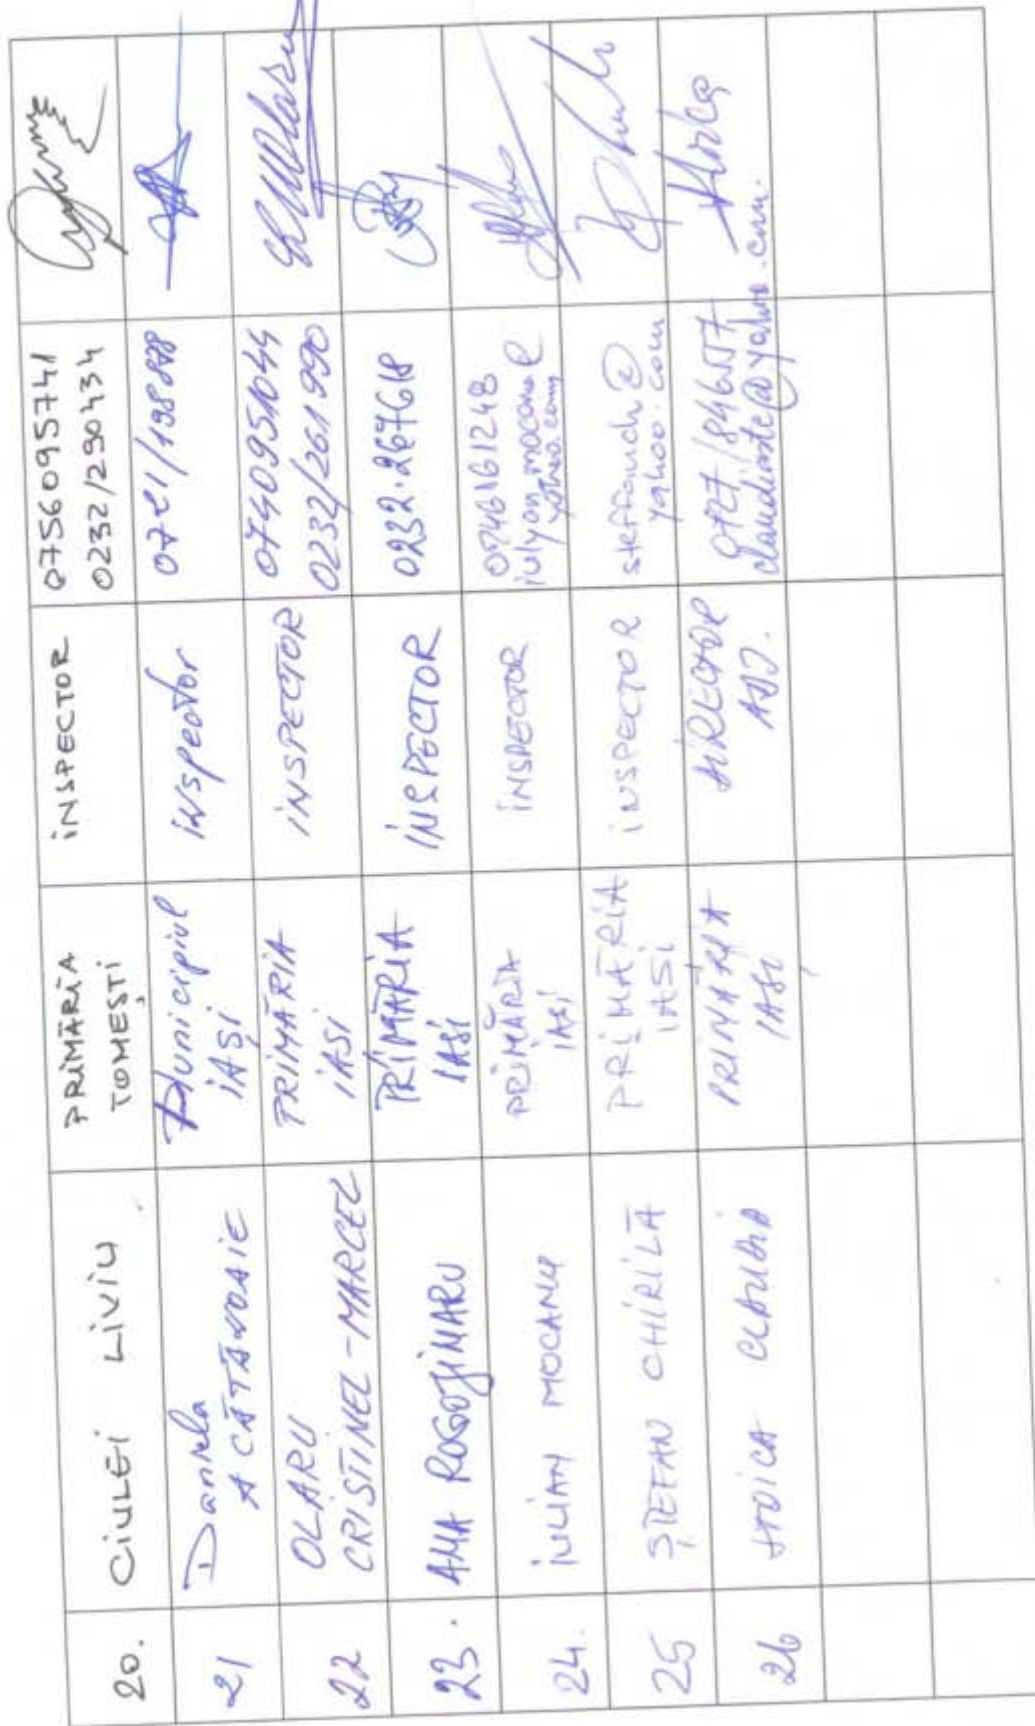 20.
CiULEi LiViU
PRiMĂRiA
TOMEȘTI
iNSPECTOR
0756095741
0232/290434
21
Daniela
A CĂTĂNOAIE
Municipiul
iAȘi
inspector
22
OLARU
CRISTINEL-MARCEL
PRIMĂRIA
IASI
iNSPECTOR
0740951044
0232/261990
23.
ANA ROGOJINARU
PRiMĂRiA
IASi
iNSPECTOR
0232.267618
24.
iULiAN MOCANU
PRiMĂRiA
IAȘI
iNSPECTOR
0746161248
iulyanmocanu@
yahoo.com
25
ȘTEFAN CHiRiLĂ
PRiMĂRiA
IASI
iNSPECTOR
steffanch@
yahoo.com
26
STOICA CLAUDIA
PRIMĂRIA
IASI
DIRECTOR
ADJ.